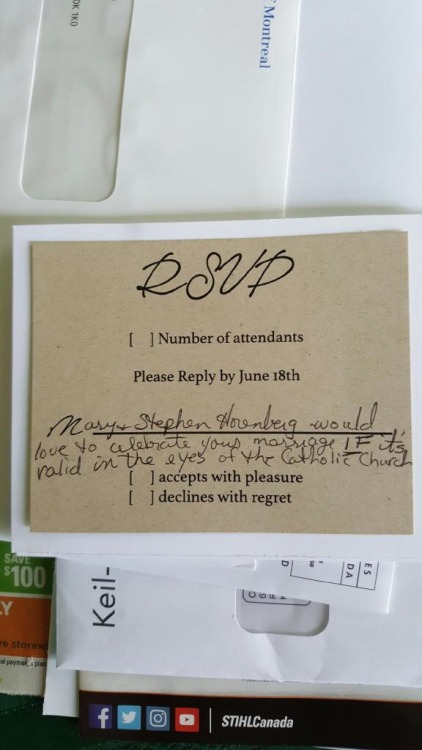 0K 1K0
Montreal
RSVP
[ ] Number of attendants
Please Reply by June 18th
Mary + Stephen Horenberg would
love to celebrate your marriage IF its
valid in the eyes of the Catholic Church
[ ] accepts with pleasure
[ ] declines with regret
SAVE
$100
LY
Keil-
ES
DA
D
STIHLCanada